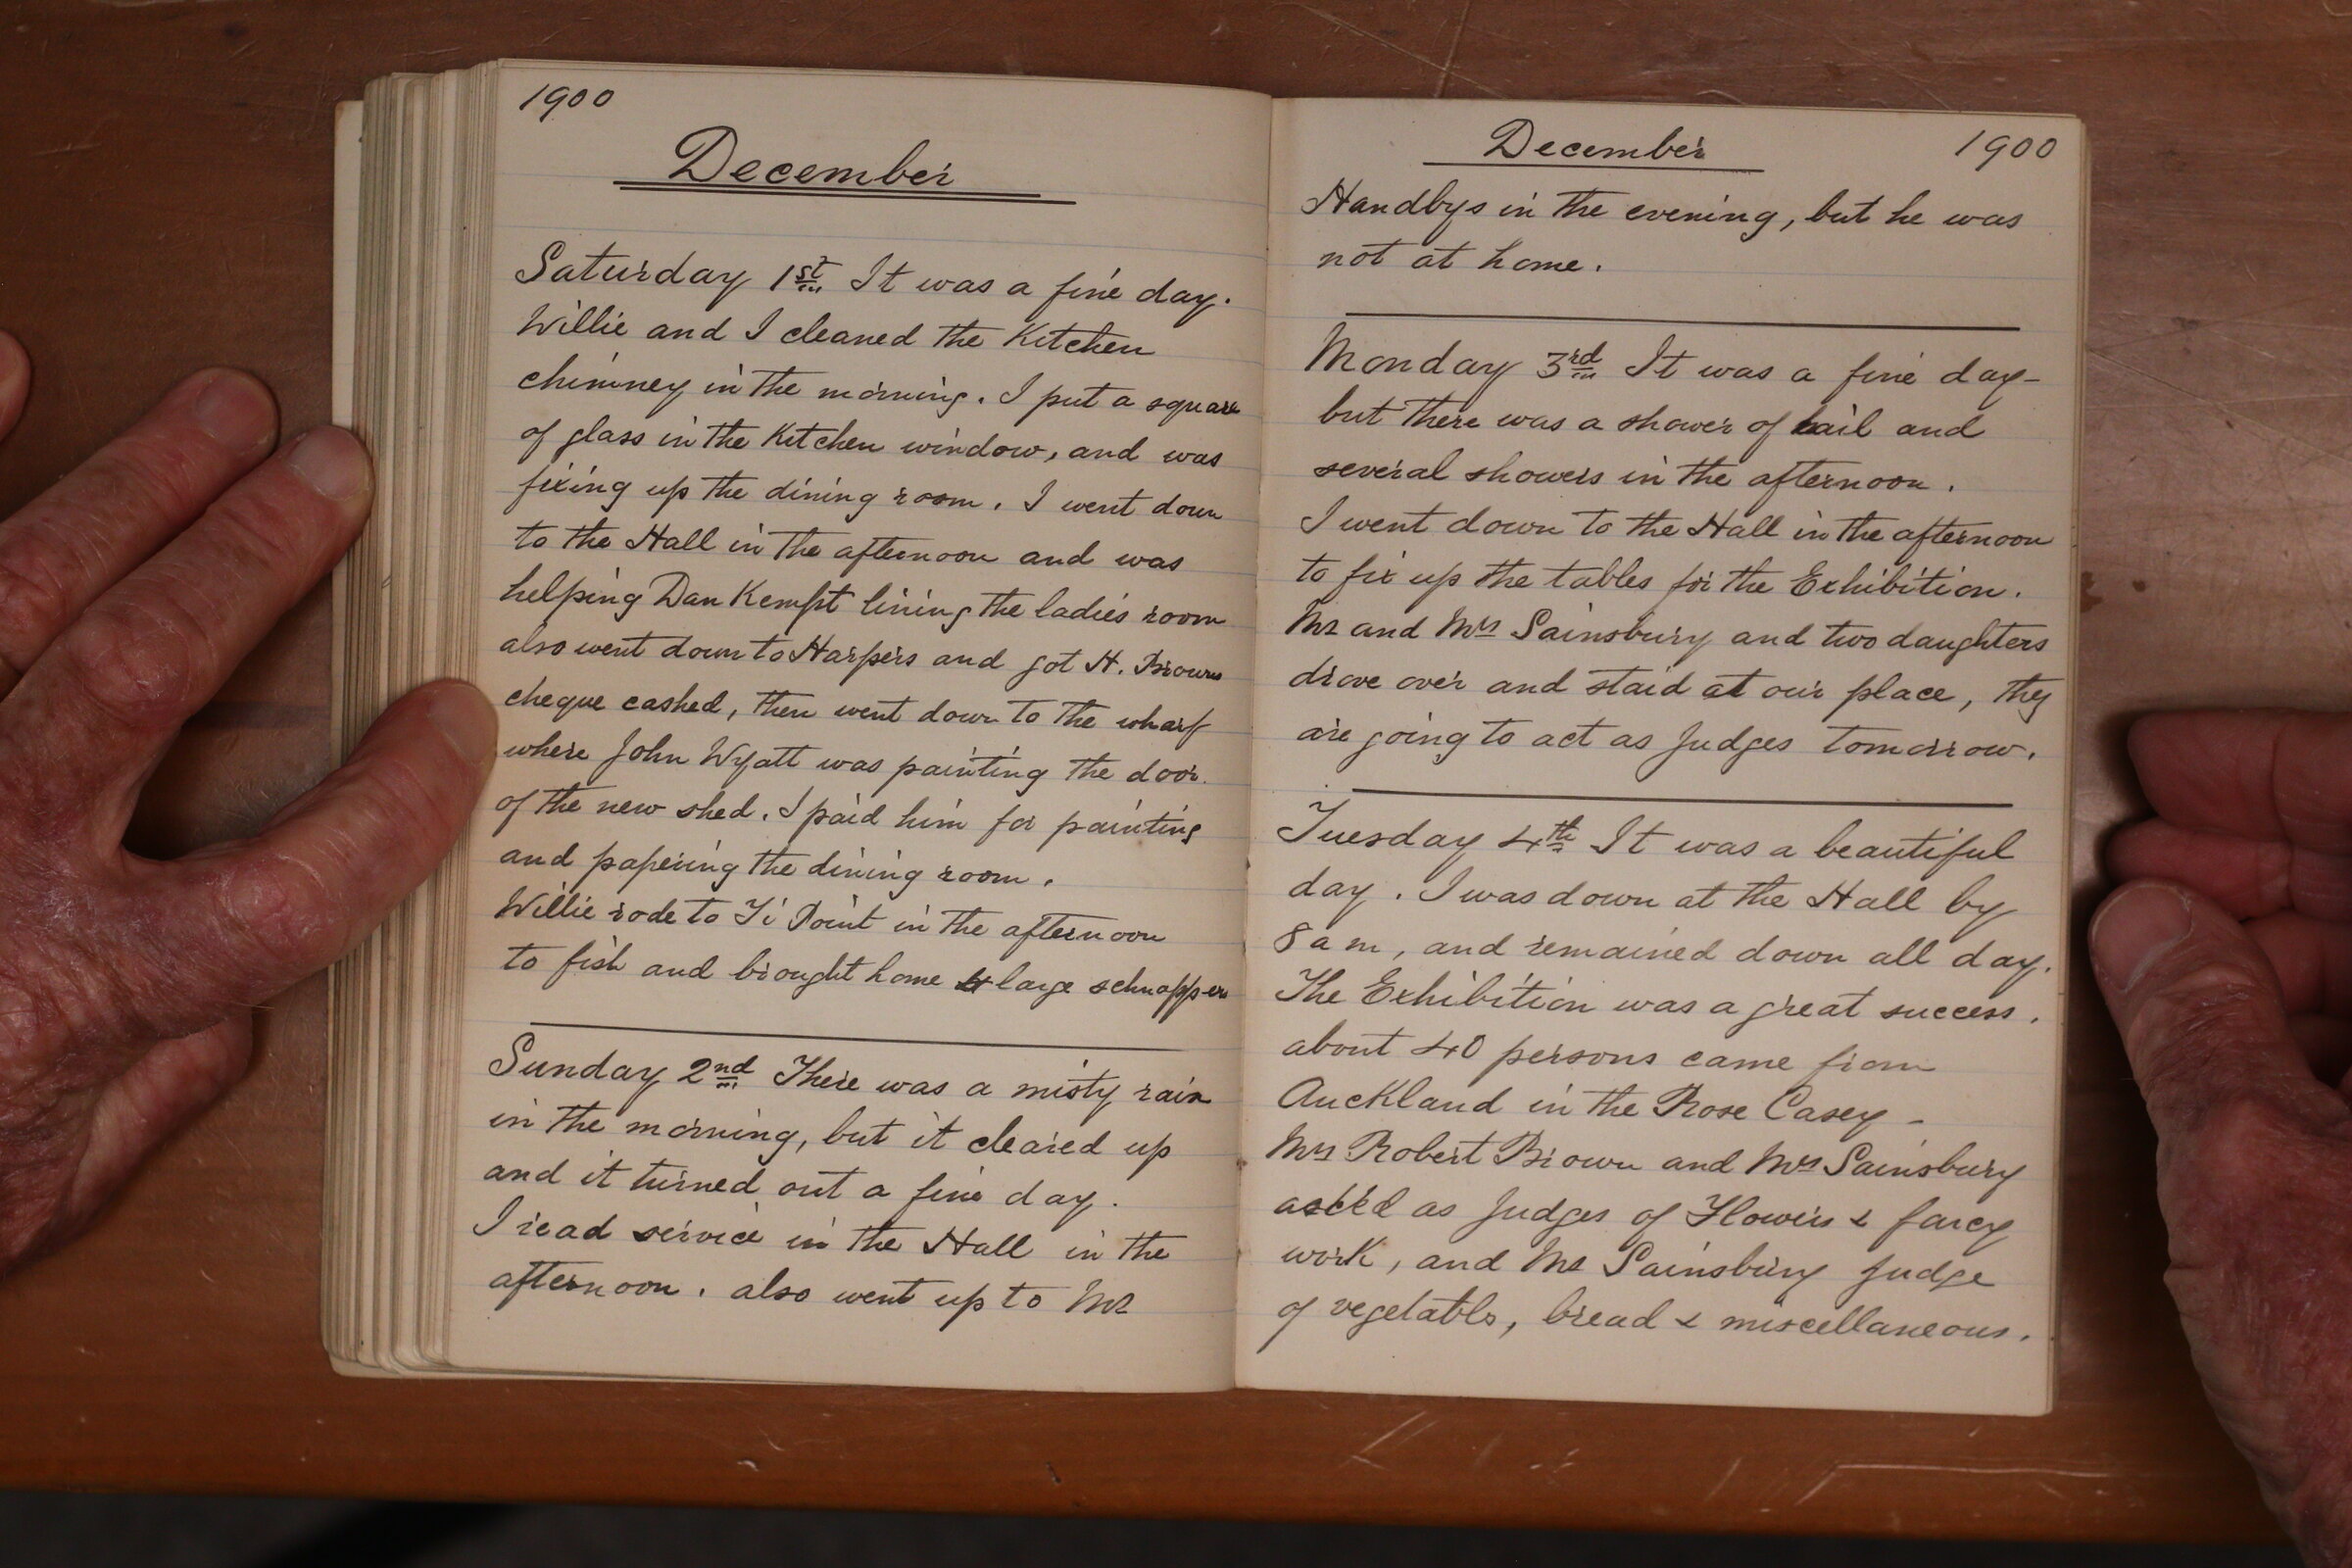 1900
December
Saturday 1st It was a fine day.
Willie and I cleaned the Kitchen
chimney in the morning. I put a square
of glass in the Kitchen window, and was
fixing up the dining room. I went down
to the Hall in the afternoon and was
helping Dan Kempt lining the ladies room
also went down to Harpers and got H. Browns
cheque cashed, then went down to the wharf
where John Wyatt was painting the door
of the new shed. I paid him for painting
and papering the dining room.
Willie rode to Ti Point in the afternoon
to fish and brought home 4 large schnappers
Sunday 2nd There was a misty rain
in the morning, but it cleared up
and it turned out a fine day.
I read service in the Hall in the
afternoon. also went up to Mr
December 1900
Handbys in the evening, but he was
not at home.
Monday 3rd It was a fine day-
but there was a shower of hail and
several showers in the afternoon.
I went down to the Hall in the afternoon
to fix up the tables for the Exhibition.
Mr and Mrs Sainsbury and two daughters
drove over and staid at our place, they
are going to act as Judges tomorrow.
Tuesday 4th It was a beautiful
day. I was down at the Hall by
8 am, and remained down all day.
The Exhibition was a great success.
about 40 persons came from
Auckland in the Rose Casey -
Mrs Robert Brown and Mrs Sainsbury
acted as Judges of Flowers & fancy
work, and Mr Sainsbury Judge
of vegetabls, bread & miscellaneous.